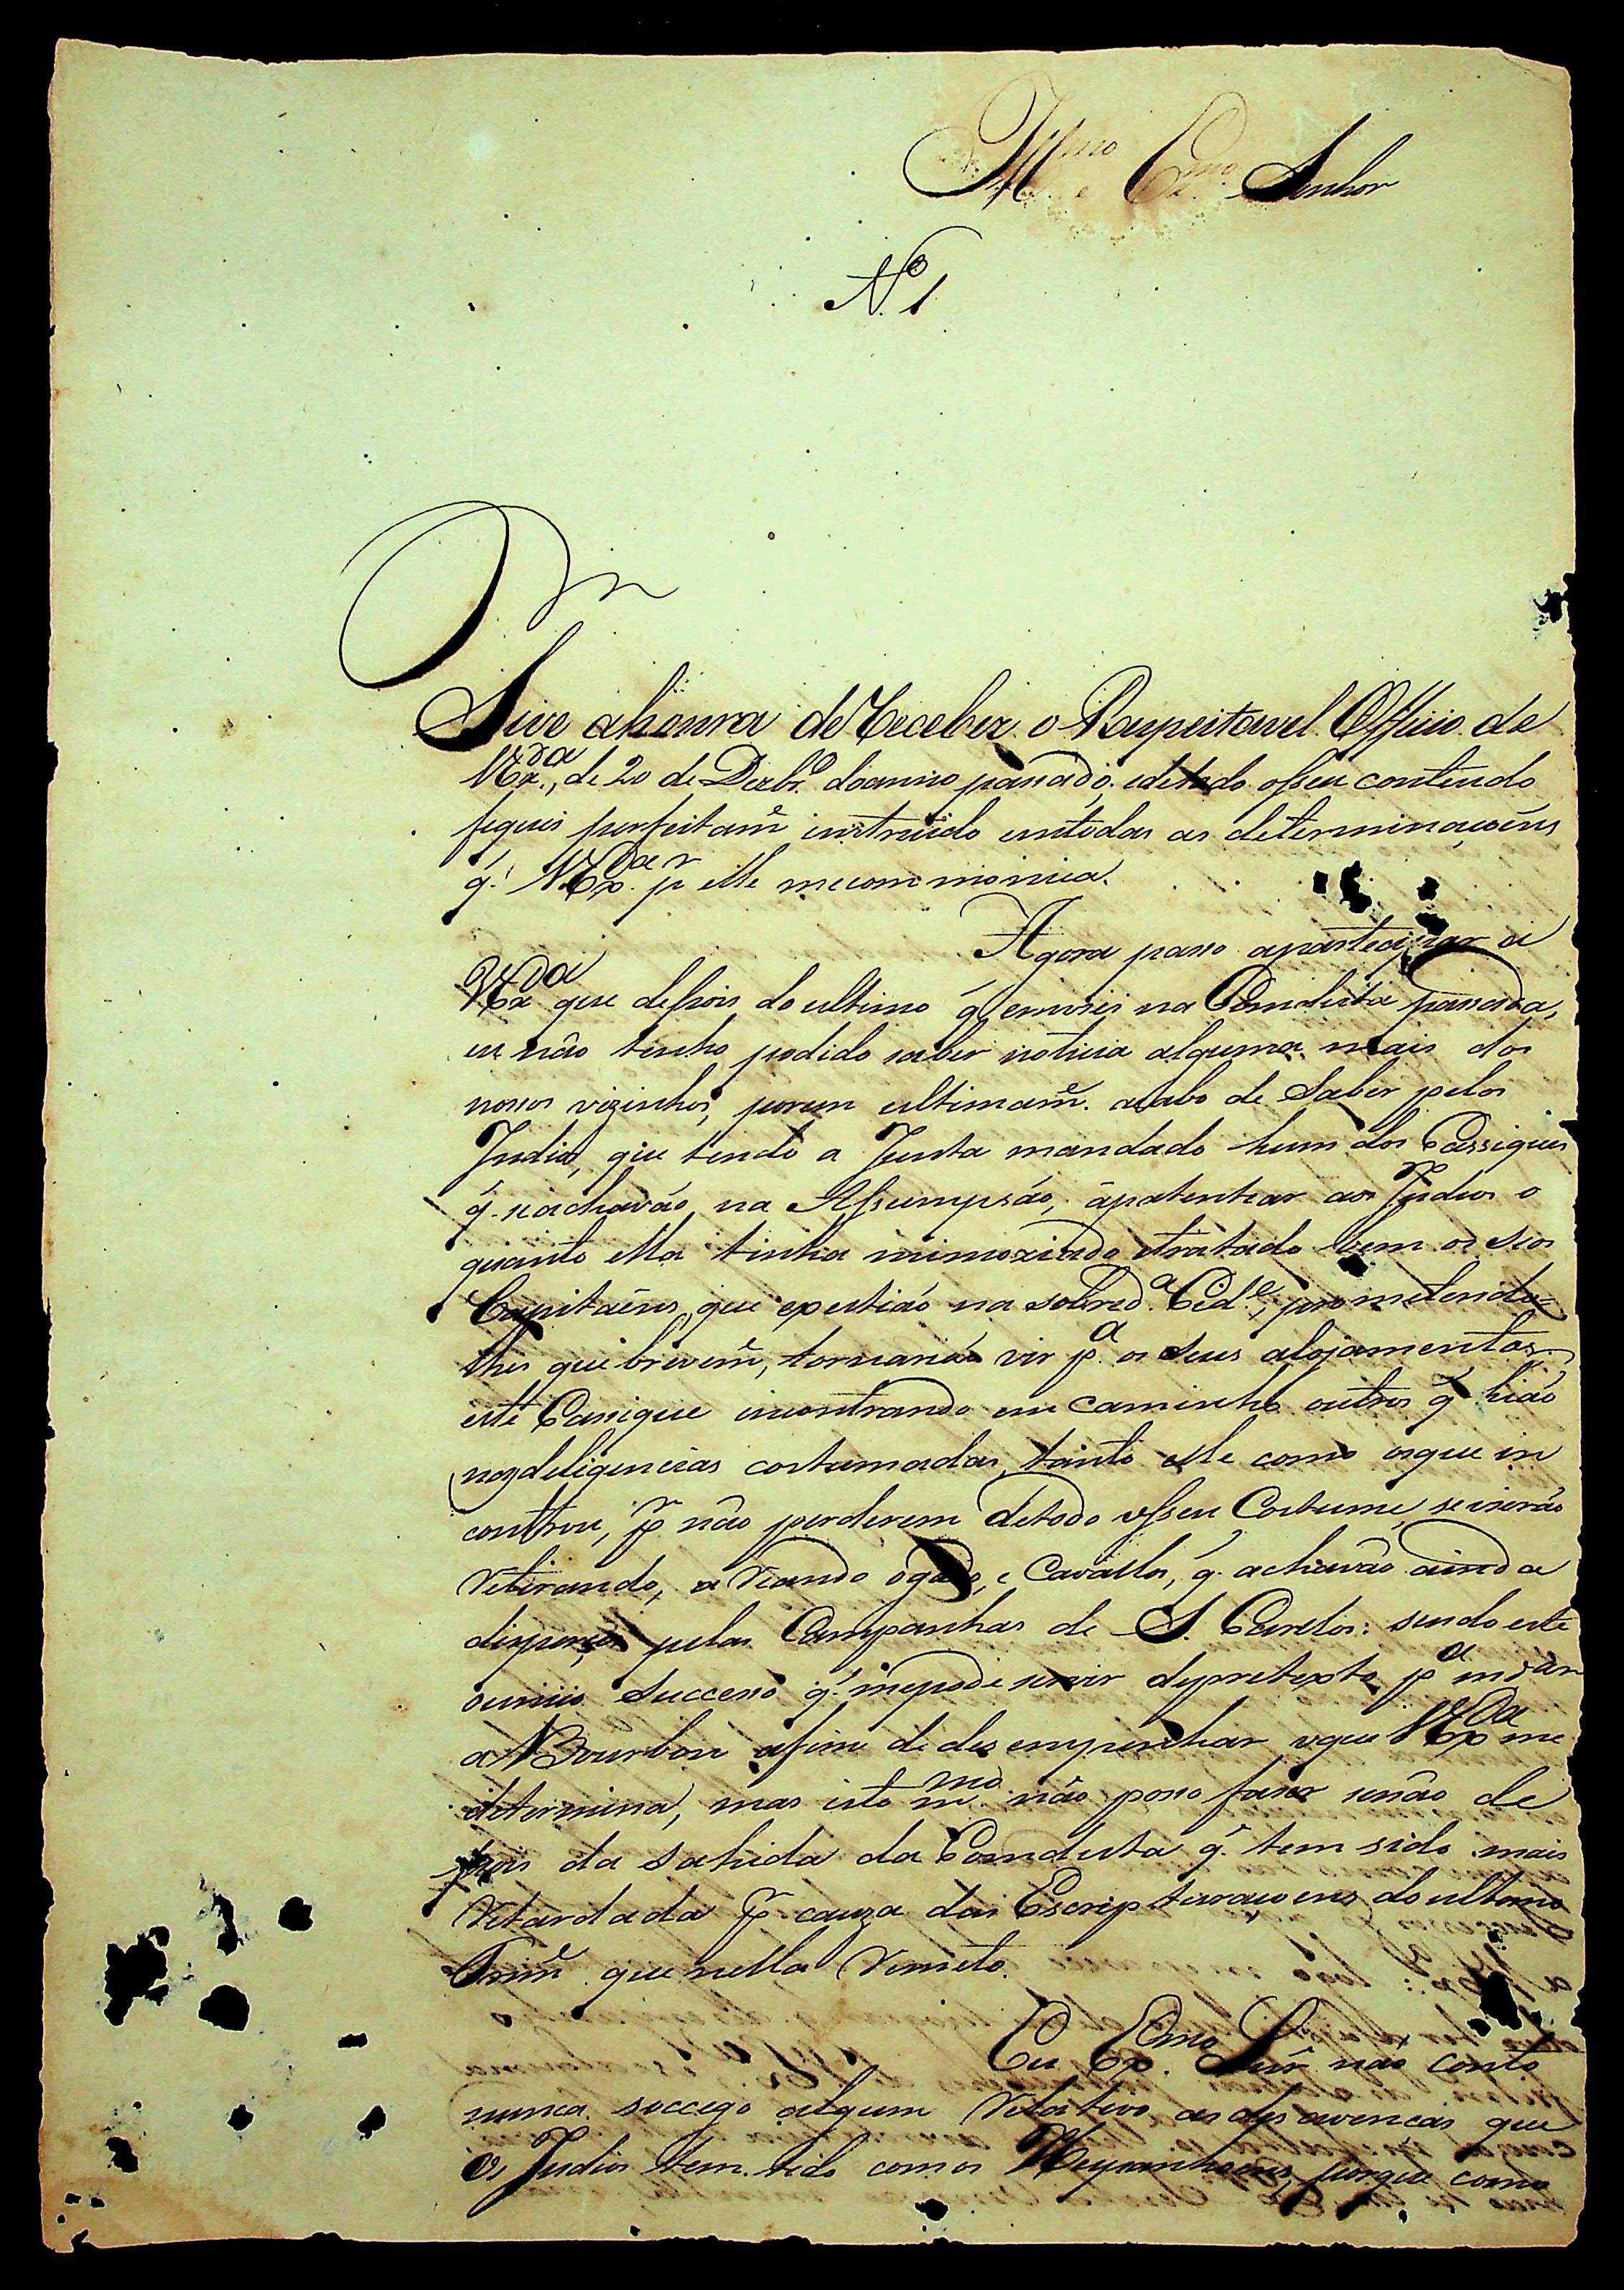 Ill.mo e Ex.mo Senhor
N.o 1
Tive ahonra de Receber o Respeitavel Officio de
V.Ex.a, de 20 de Dezbr.o doanno passado, edetodo osseu conteudo
fiquei perfeitam.e instruido emtodas as determinaçoens
q.' V.Ex.a p.r elle mecommonica.
Agora passo aparteçipar a
V.Ex.a que depois do ultimo q' enviei na Conduta passada,
eu não tenho podido saber noticia alguma mais dos
nossos vizinhos, porem ultimam.e acabo de Saber pelos
Indios, que tendo a Junta mandado hum dos Cassiques
q. seachavão na Assumpsão, apatentear aos Indios o
quanto ella tinha mimoziado etratado bem os seos
Capitaens, que exestião na sobred.a Cid.e, prometendo=
lhes que brevem.e, tornarião vir p.a os seus alojamentos:
este Cassique incontrando em caminho outros q' hião
nasdeligencias costumadas, tanto elle como osque in
controu, p.r não perderem detodo osseu Costume, sevierão
Retirando, a Reando ogado, e Cavallos, q. achavão ainda
disperços pelas Campanhas de S. Carlos: sendo este
ounico Successo q.' mepode servir depretexto p.a mandar
a Bourbon afim de desempenhar oque V.Ex.a me
determina, mas isto m.mo não posso fazer senão de
pois da sahida da Conduta q.' tem sido mais
Retardada p.r cauza das Escripturaçoens doultimo
Trim.e que nella Remeto.
Eu Ex.mo Snr' não conto
nunca soccego algum Relativo asdesavenças que
os Indios tem tido comos porque como